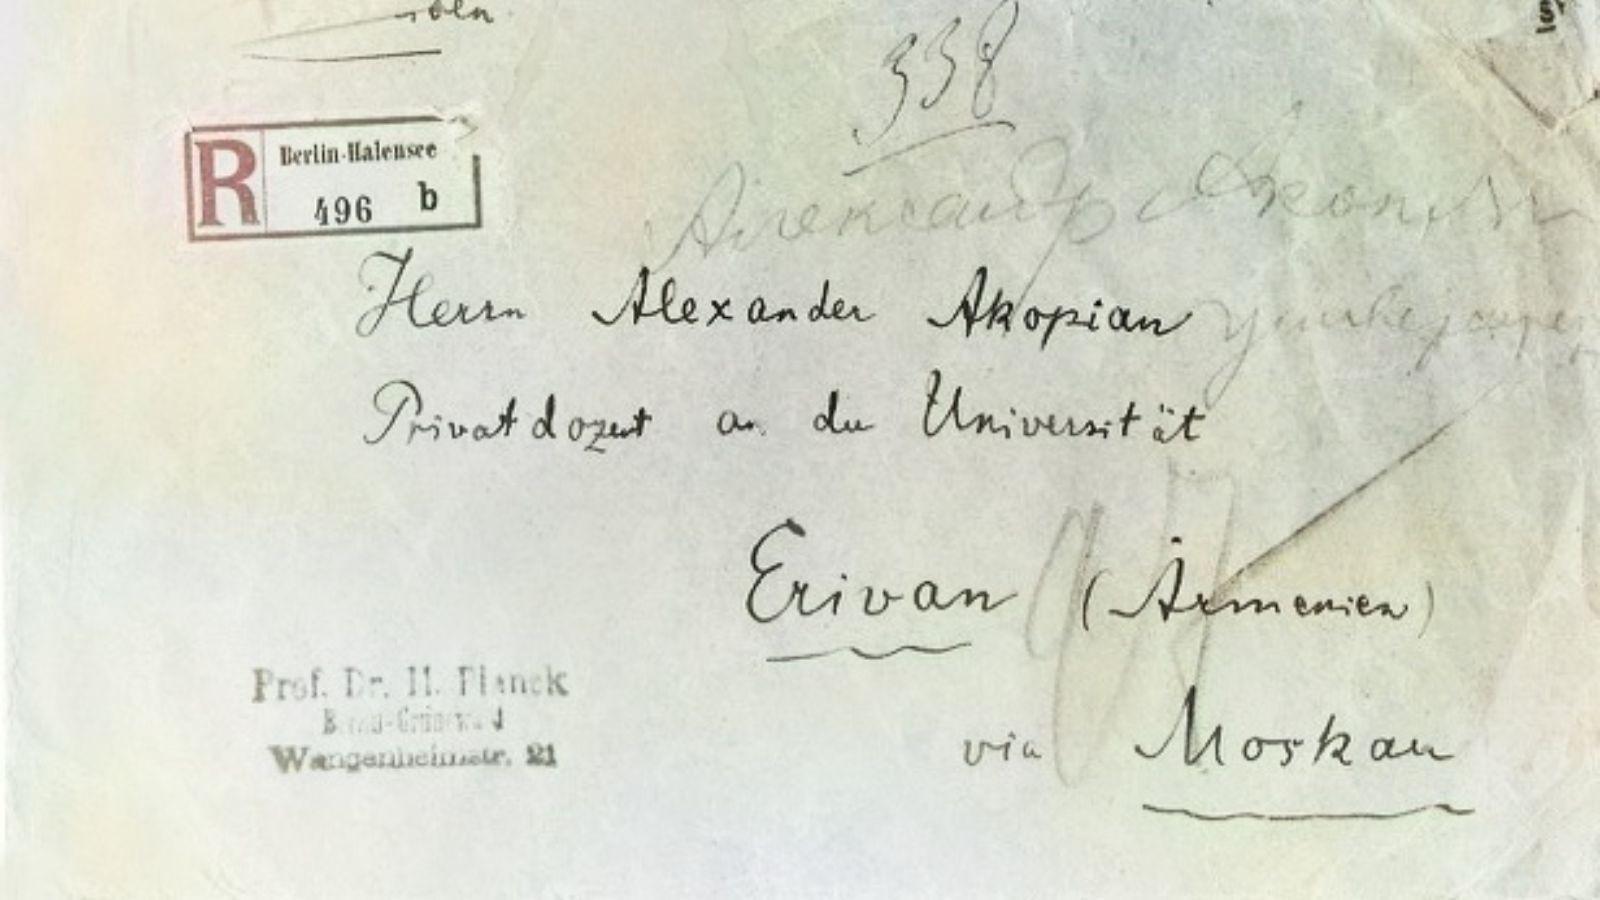 338
R Berlin-Halensee
496 b
Александр
Herrn Alexander Akopian
Privatdozent an der Universität
Erivan (Armenien)
via Moskau
Prof. Dr. M. Planck
Berlin-Grunewald
Wangenheimstr. 21